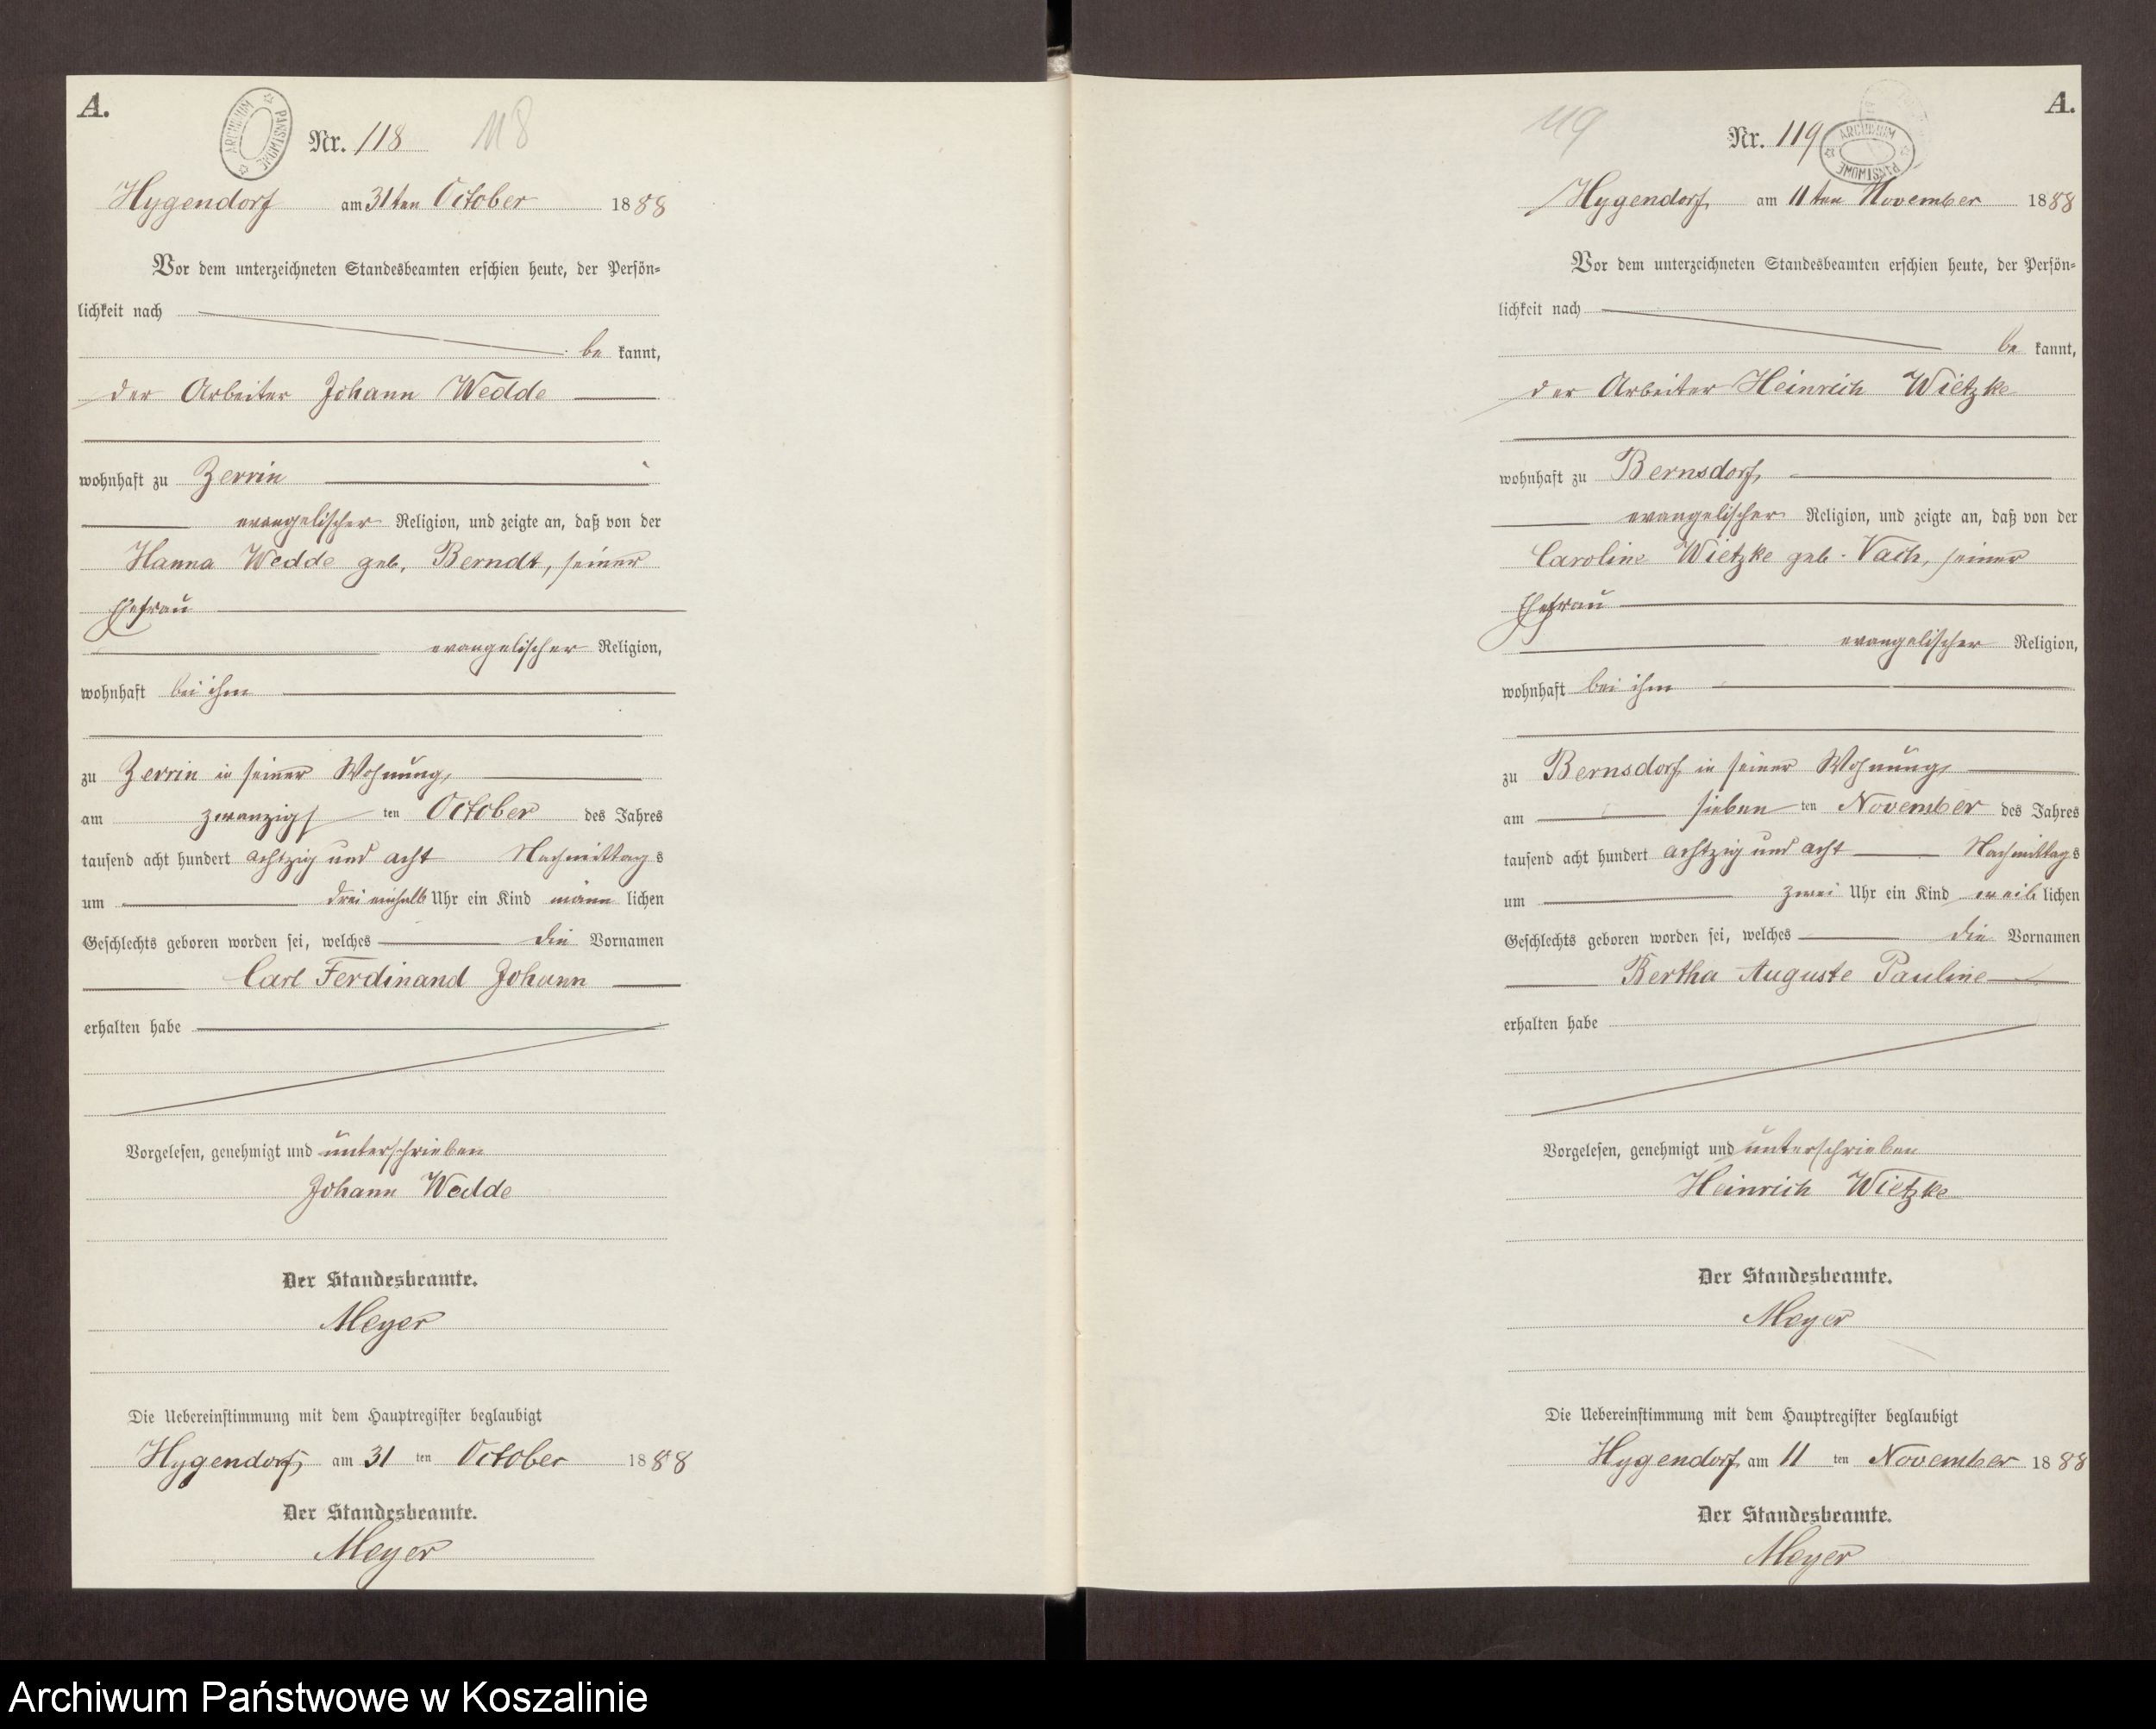 A.
ARCHIWUM PAŃSTWOWE
Nr. 118 118
Hygendorf am 31ten October 1888
Vor dem unterzeichneten Standesbeamten erschien heute, der Persön-
lichkeit nach
be kannt,
der Arbeiter Johann Wedde
wohnhaft zu Zerrin
evangelischer Religion, und zeigte an, daß von der
Hanna Wedde geb. Berndt, seiner
Ehefrau
evangelischer Religion,
wohnhaft bei ihm
zu Zerrin in seiner Wohnung,
am zwanzigsten October des Jahres
tausend acht hundert achtzig und acht Nachmittags
um drei einhalb Uhr ein Kind männlichen
Geschlechts geboren worden sei, welches die Vornamen
Carl Ferdinand Johann
erhalten habe
Vorgelesen, genehmigt und unterschrieben
Johann Wedde
Der Standesbeamte.
Meyer
Die Uebereinstimmung mit dem Hauptregister beglaubigt
Hygendorf, am 31 ten October 1888
Der Standesbeamte.
Meyer
A.
119 Nr. 119
ARCHIWUM PAŃSTWOWE
Hygendorf, am 11ten November 1888
Vor dem unterzeichneten Standesbeamten erschien heute, der Persön-
lichkeit nach
be kannt,
der Arbeiter Heinrich Wietzke
wohnhaft zu Bernsdorf,
evangelischer Religion, und zeigte an, daß von der
Caroline Wietzke geb. Vach, seiner
Ehefrau
evangelischer Religion,
wohnhaft bei ihm
zu Bernsdorf, in seiner Wohnung,
am sieben ten November des Jahres
tausend acht hundert achtzig und acht Nachmittags
um zwei Uhr ein Kind weiblichen
Geschlechts geboren worden sei, welches die Vornamen
Bertha Auguste Pauline
erhalten habe
Vorgelesen, genehmigt und unterschrieben
Heinrich Wietzke
Der Standesbeamte.
Meyer
Die Uebereinstimmung mit dem Hauptregister beglaubigt
Hygendorf, am 11 ten November 1888
Der Standesbeamte.
Meyer
Archiwum Państwowe w Koszalinie